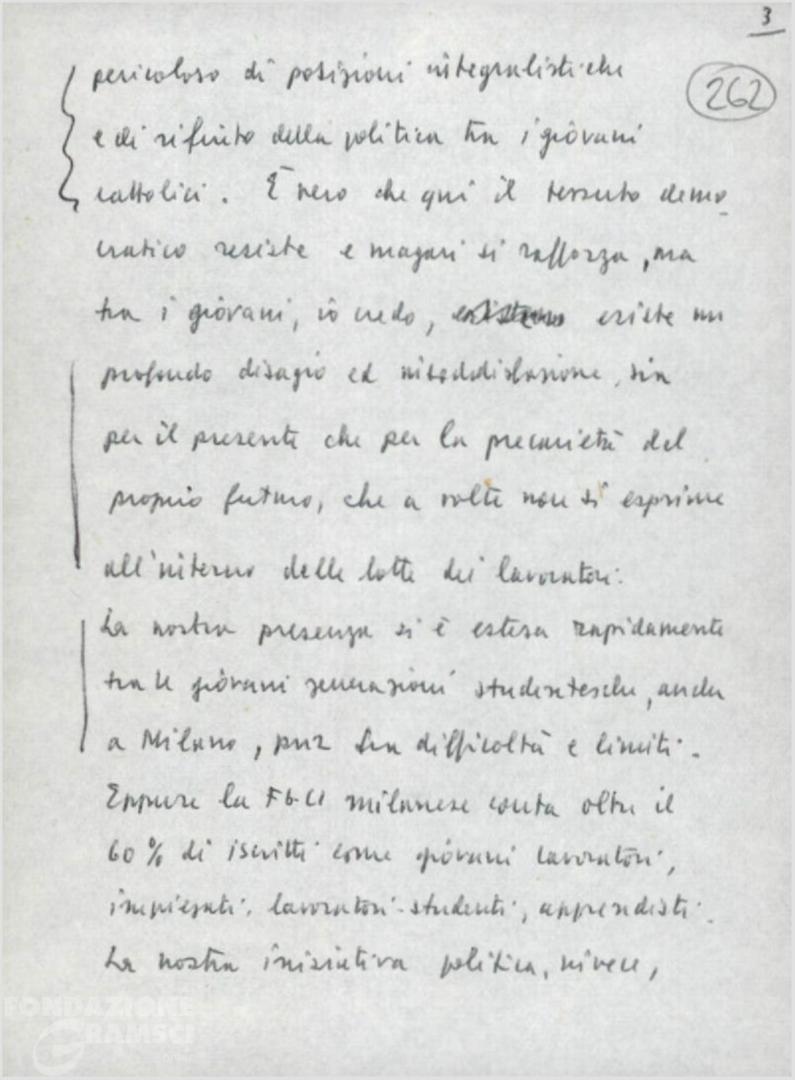 3
262
pericoloso di posizioni integralistiche
e di rifiuto della politica tra i giovani
cattolici. È vero che qui il tessuto demo-
cratico resiste e magari si rafforza, ma
tra i giovani, io credo, esiste un
profondo disagio ed insoddisfazione, sia
per il presente che per la precarietà del
proprio futuro, che a volte non si esprime
all'interno delle lotte dei lavoratori.
La nostra presenza si è estesa rapidamente
tra le giovani generazioni studentesche, anche
a Milano, pur tra difficoltà e limiti.
Eppure la FGCI milanese conta oltre il
60% di iscritti come giovani lavoratori,
impiegati, lavoratori-studenti, apprendisti.
La nostra iniziativa politica, invece,
FONDAZIONE
GRAMSCI